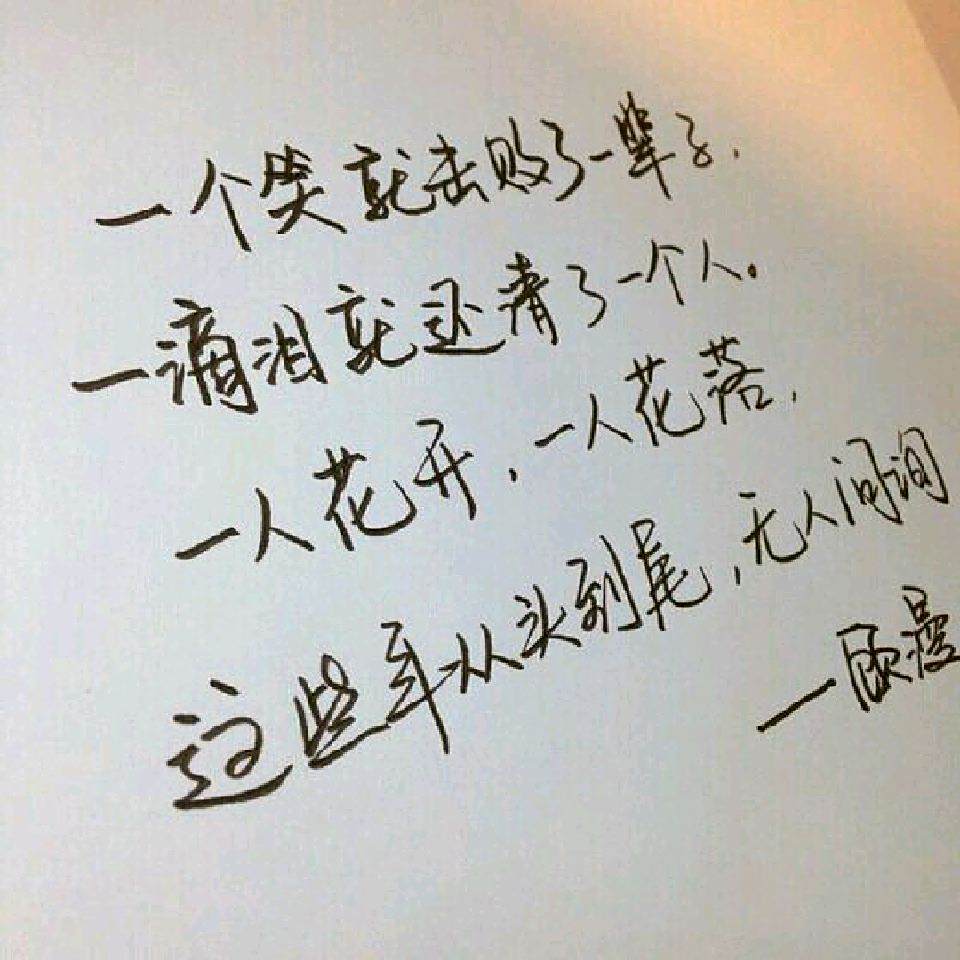 一个笑就击败了一辈子.
一滴泪就还清了一个人。
一人花开,一人花落,
这些年从头到尾,无人问询
—顾漫